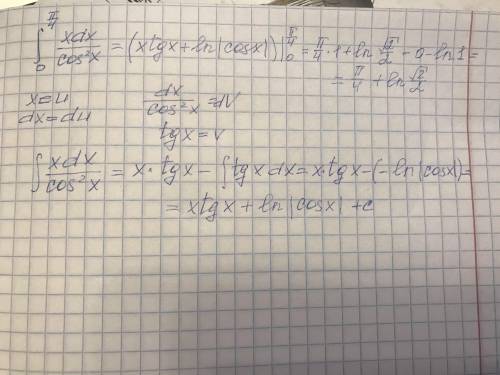 ∫₀^(π/4) xdx/cos²x = (xtgx+ln|cosx|)|₀^(π/4) = π/4·1+ln √2/2 - 0 - ln1 =
= π/4 + ln √2/2
x=u dx/cos²x = dV
dx=du tgx=v
∫ xdx/cos²x = x·tgx - ∫tgxdx = x·tgx-(-ln|cosx|) =
= xtgx + ln|cosx| + c